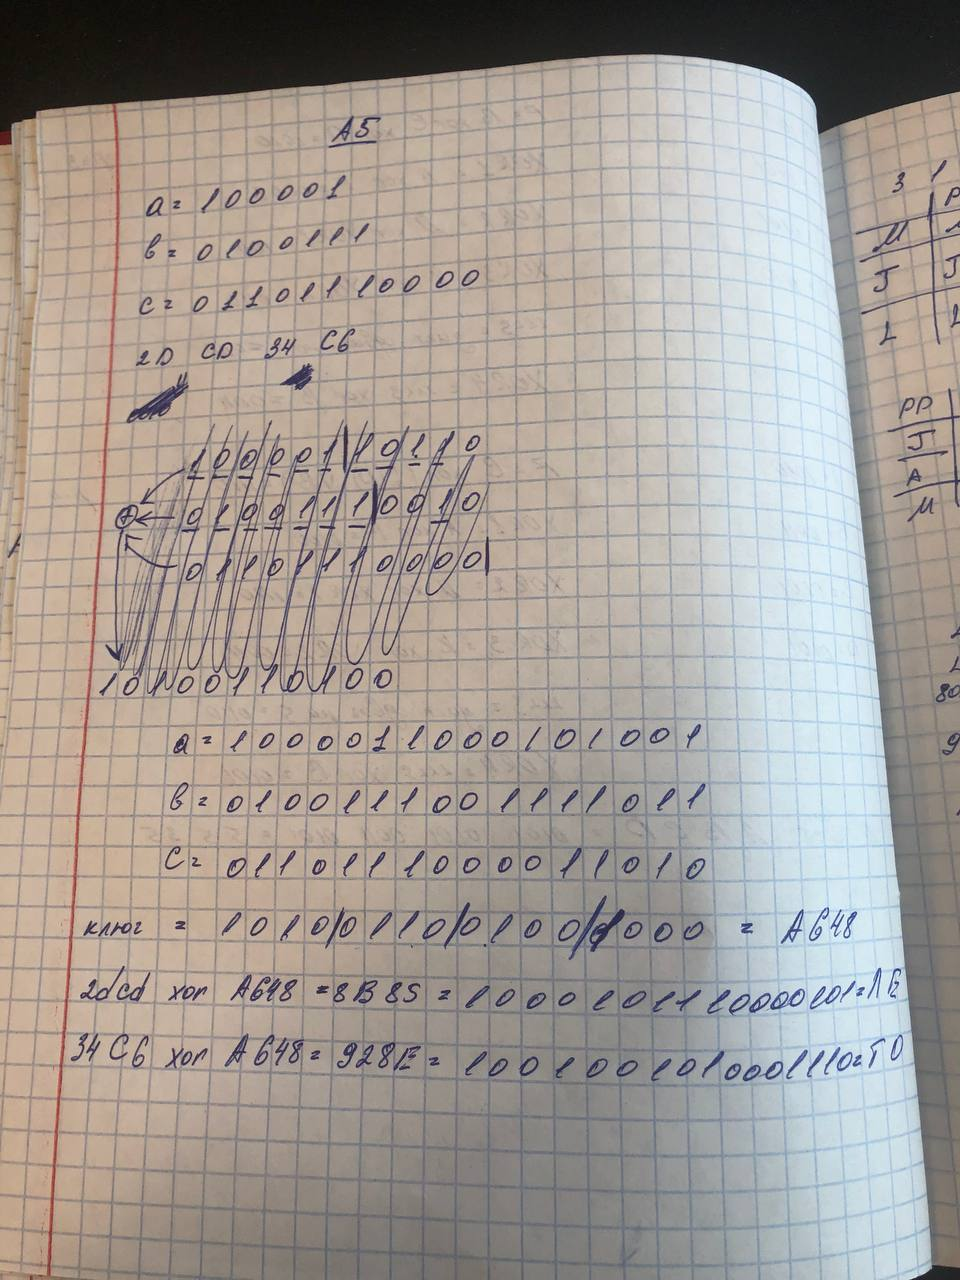 A5
a = 100001
b = 0100111
c = 01101110000
2D CD 34 C6
1 0 0 0 0 1 | 1 0 1 1 0
0 1 0 0 1 1 1 | 0 0 1 0
0 1 1 0 1 1 1 0 0 0 0 |
1 0 1 0 0 1 1 0 1 0 0
a = 1000011000101001
b = 01001111001111011
c = 0110111000011010
ключ = 1010/0110/0100/1000 = A648
2dcd хоп A648 = 8B85 = 1000101110000101 = ЛЕ
34C6 хоп A648 = 928E = 1001001010001110 = ТО
3 1
M
J
L
PP
J
A
M